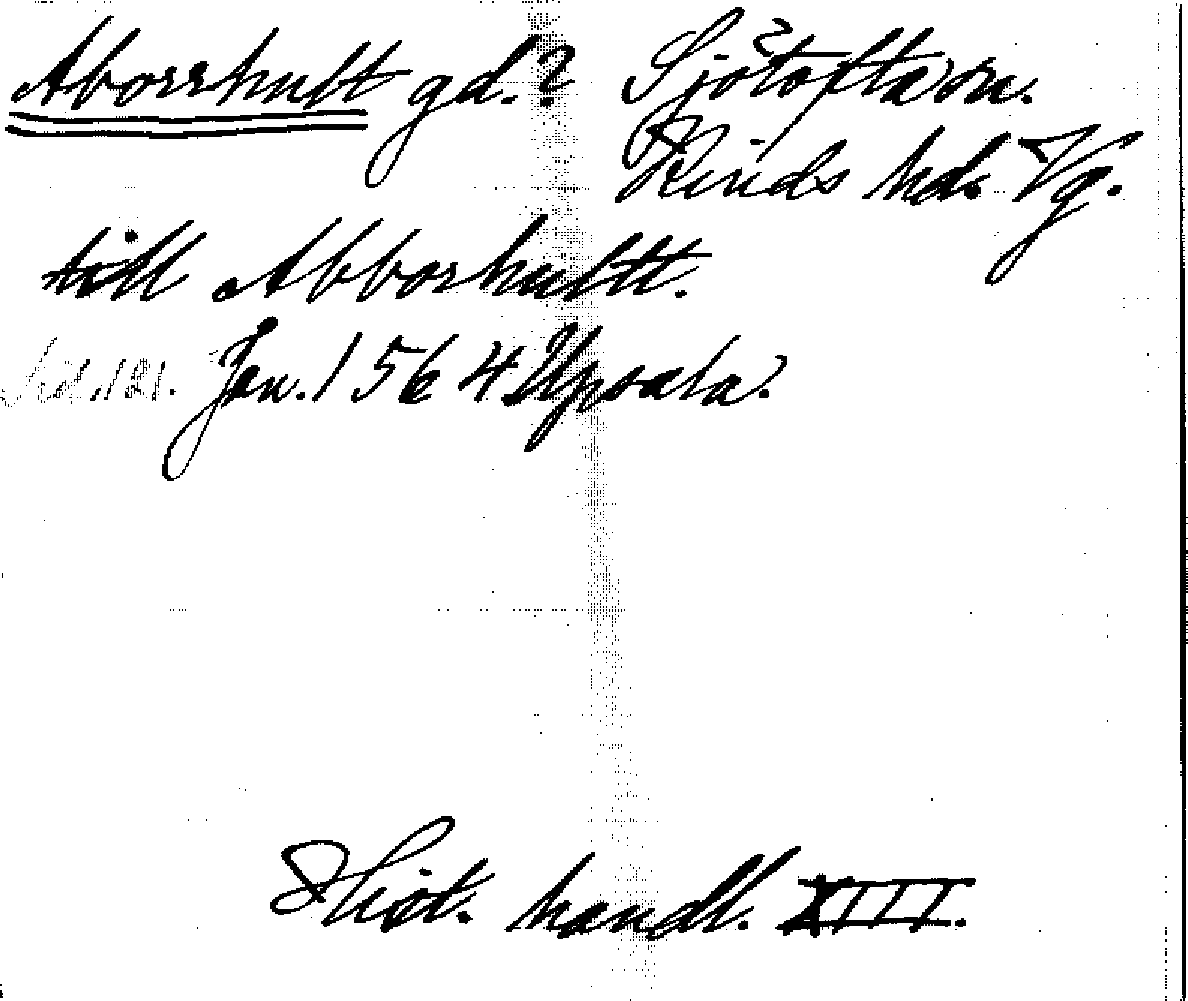 Aborrhult gd.? Sjötofta sn.
Kinds hd. Vg.
till Abborhultt.
Sid. 121. Jan. 1564 Upsala.
Hist. handl. XIII.